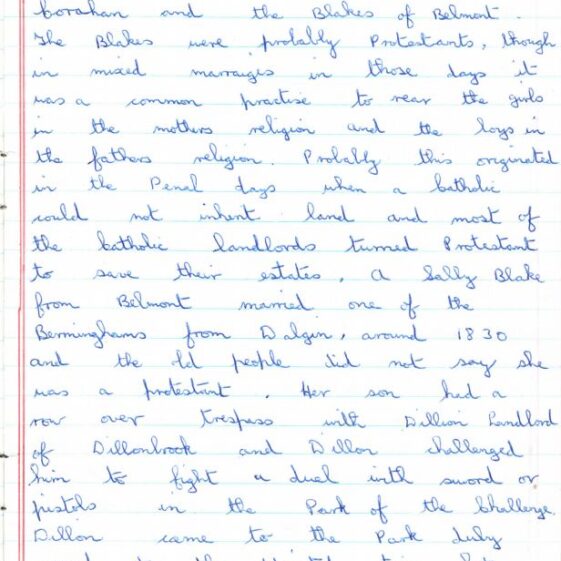 corahan and the Blakes of Belmont.
The Blakes were probably Protestants, though
in mixed marraiges in those days it
was a common practise to rear the girls
in the mothers religion and the boys in
the fathers religion. Probably this originated
in the Penal days when a Catholic
could not inherit land and most of
the Catholic landlords turned Protestant
to save their estates. A Sally Blake
from Belmont married one of the
Berminghams from Dalgin, around 1830
and the old people did not say she
was a protestant. Her son had a
row over trespass with Dillion Landlord
of Dillonbrook and Dillon challenged
him to fight a duel with sword or
pistols in the Park of the Challenge.
Dillon came to the Park July